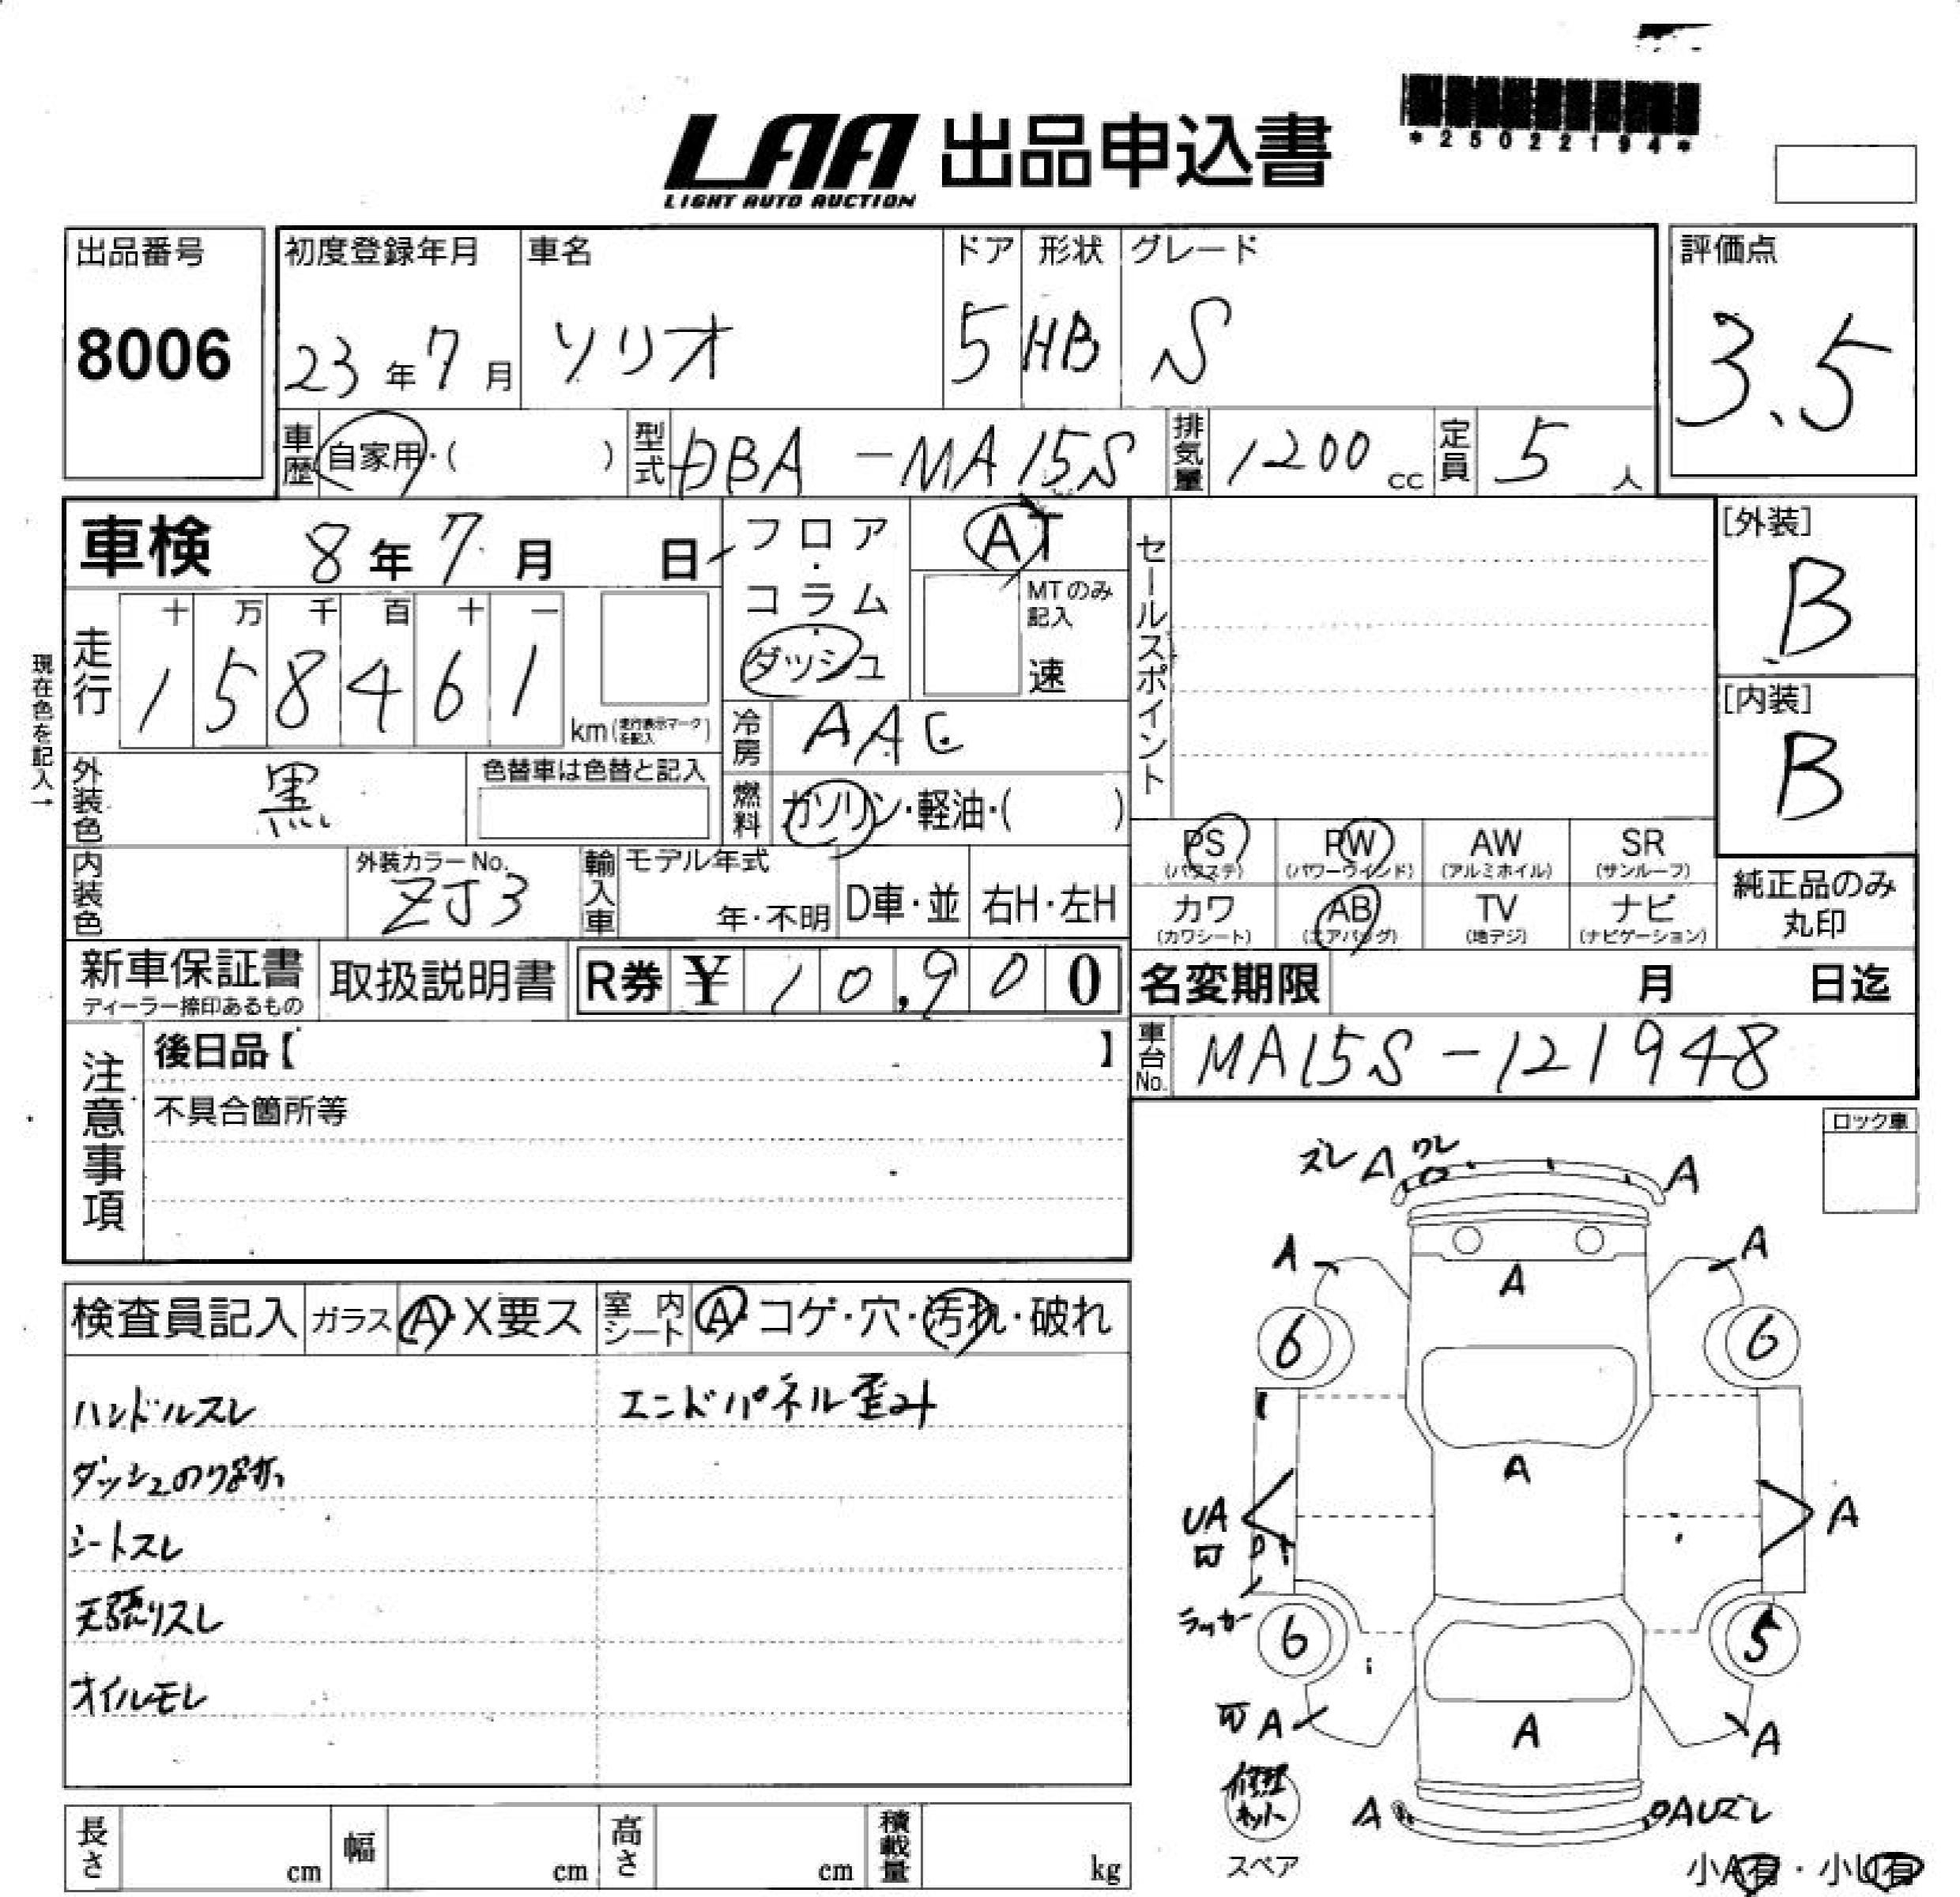 LAA 出品申込書
LIGHT AUTO AUCTION
*25022194*
出品番号
8006
初度登録年月
23年7月
車名
ソリオ
ドア
5
形状
HB
グレード
S
評価点
3.5
車歴
自家用・( )
型式
DBA-MA15S
排気量
1200cc
定員
5人
車検 8年7月 日
フロア・コラム・ダッシュ
AT
MTのみ記入
速
セールスポイント
[外装]
B
[内装]
B
現在色を記入→
走行
十 万 千 百 十 一
1 5 8 4 6 1
km(走行表示マークを記入)
冷房
AAC
外装色
黒
色替車は色替と記入
燃料
ガソリン・軽油・( )
PS
(パワステ)
PW
(パワーウィンド)
AW
(アルミホイル)
SR
(サンルーフ)
内装色
外装カラーNo.
ZJ3
輸入車
モデル年式
年・不明
D車・並
右H・左H
カワ
(カワシート)
AB
(エアバッグ)
TV
(地デジ)
ナビ
(ナビゲーション)
純正品のみ
丸印
新車保証書
ディーラー捺印あるもの
取扱説明書
R券 ¥10,900
名変期限 月 日迄
注意事項
後日品【 】
車台No.
MA15S-121948
不具合箇所等
ロック車
検査員記入
ガラス
A・X要ス
室内シート
A・コゲ・穴・汚れ・破れ
ハンドルスレ
エンドパネル歪み
ダッシュのり跡
シートスレ
天張リスレ
オイルモレ
ズレ A ワレ A
A A
A
6 6
A
UA A
ラッカー
6 5
A A A
修理キット
スペア
A AUズレ
小A有・小U有
長さ cm
幅 cm
高さ cm
積載量 kg